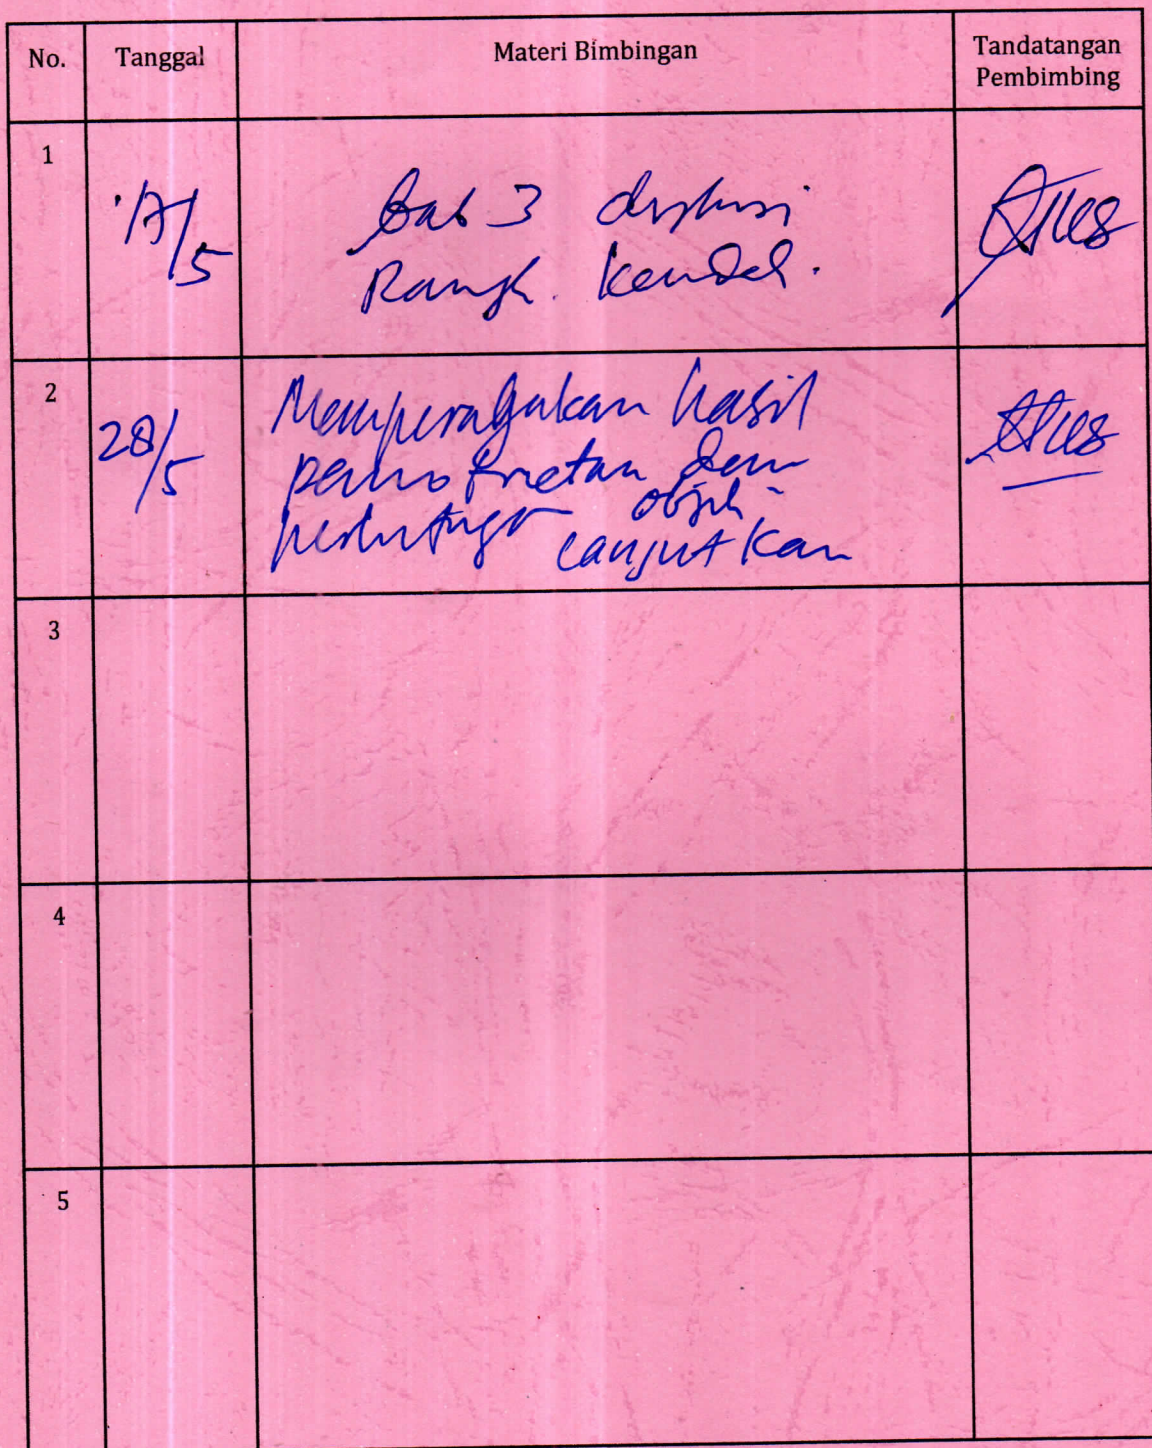 No. Tanggal Materi Bimbingan Tandatangan
Pembimbing
1
17/5 Bab 3 diskusi
Rangk. kendal.
2
28/5 Memperagakan hasil
pemotretan dan
objek
lanjutkan
3
4
5